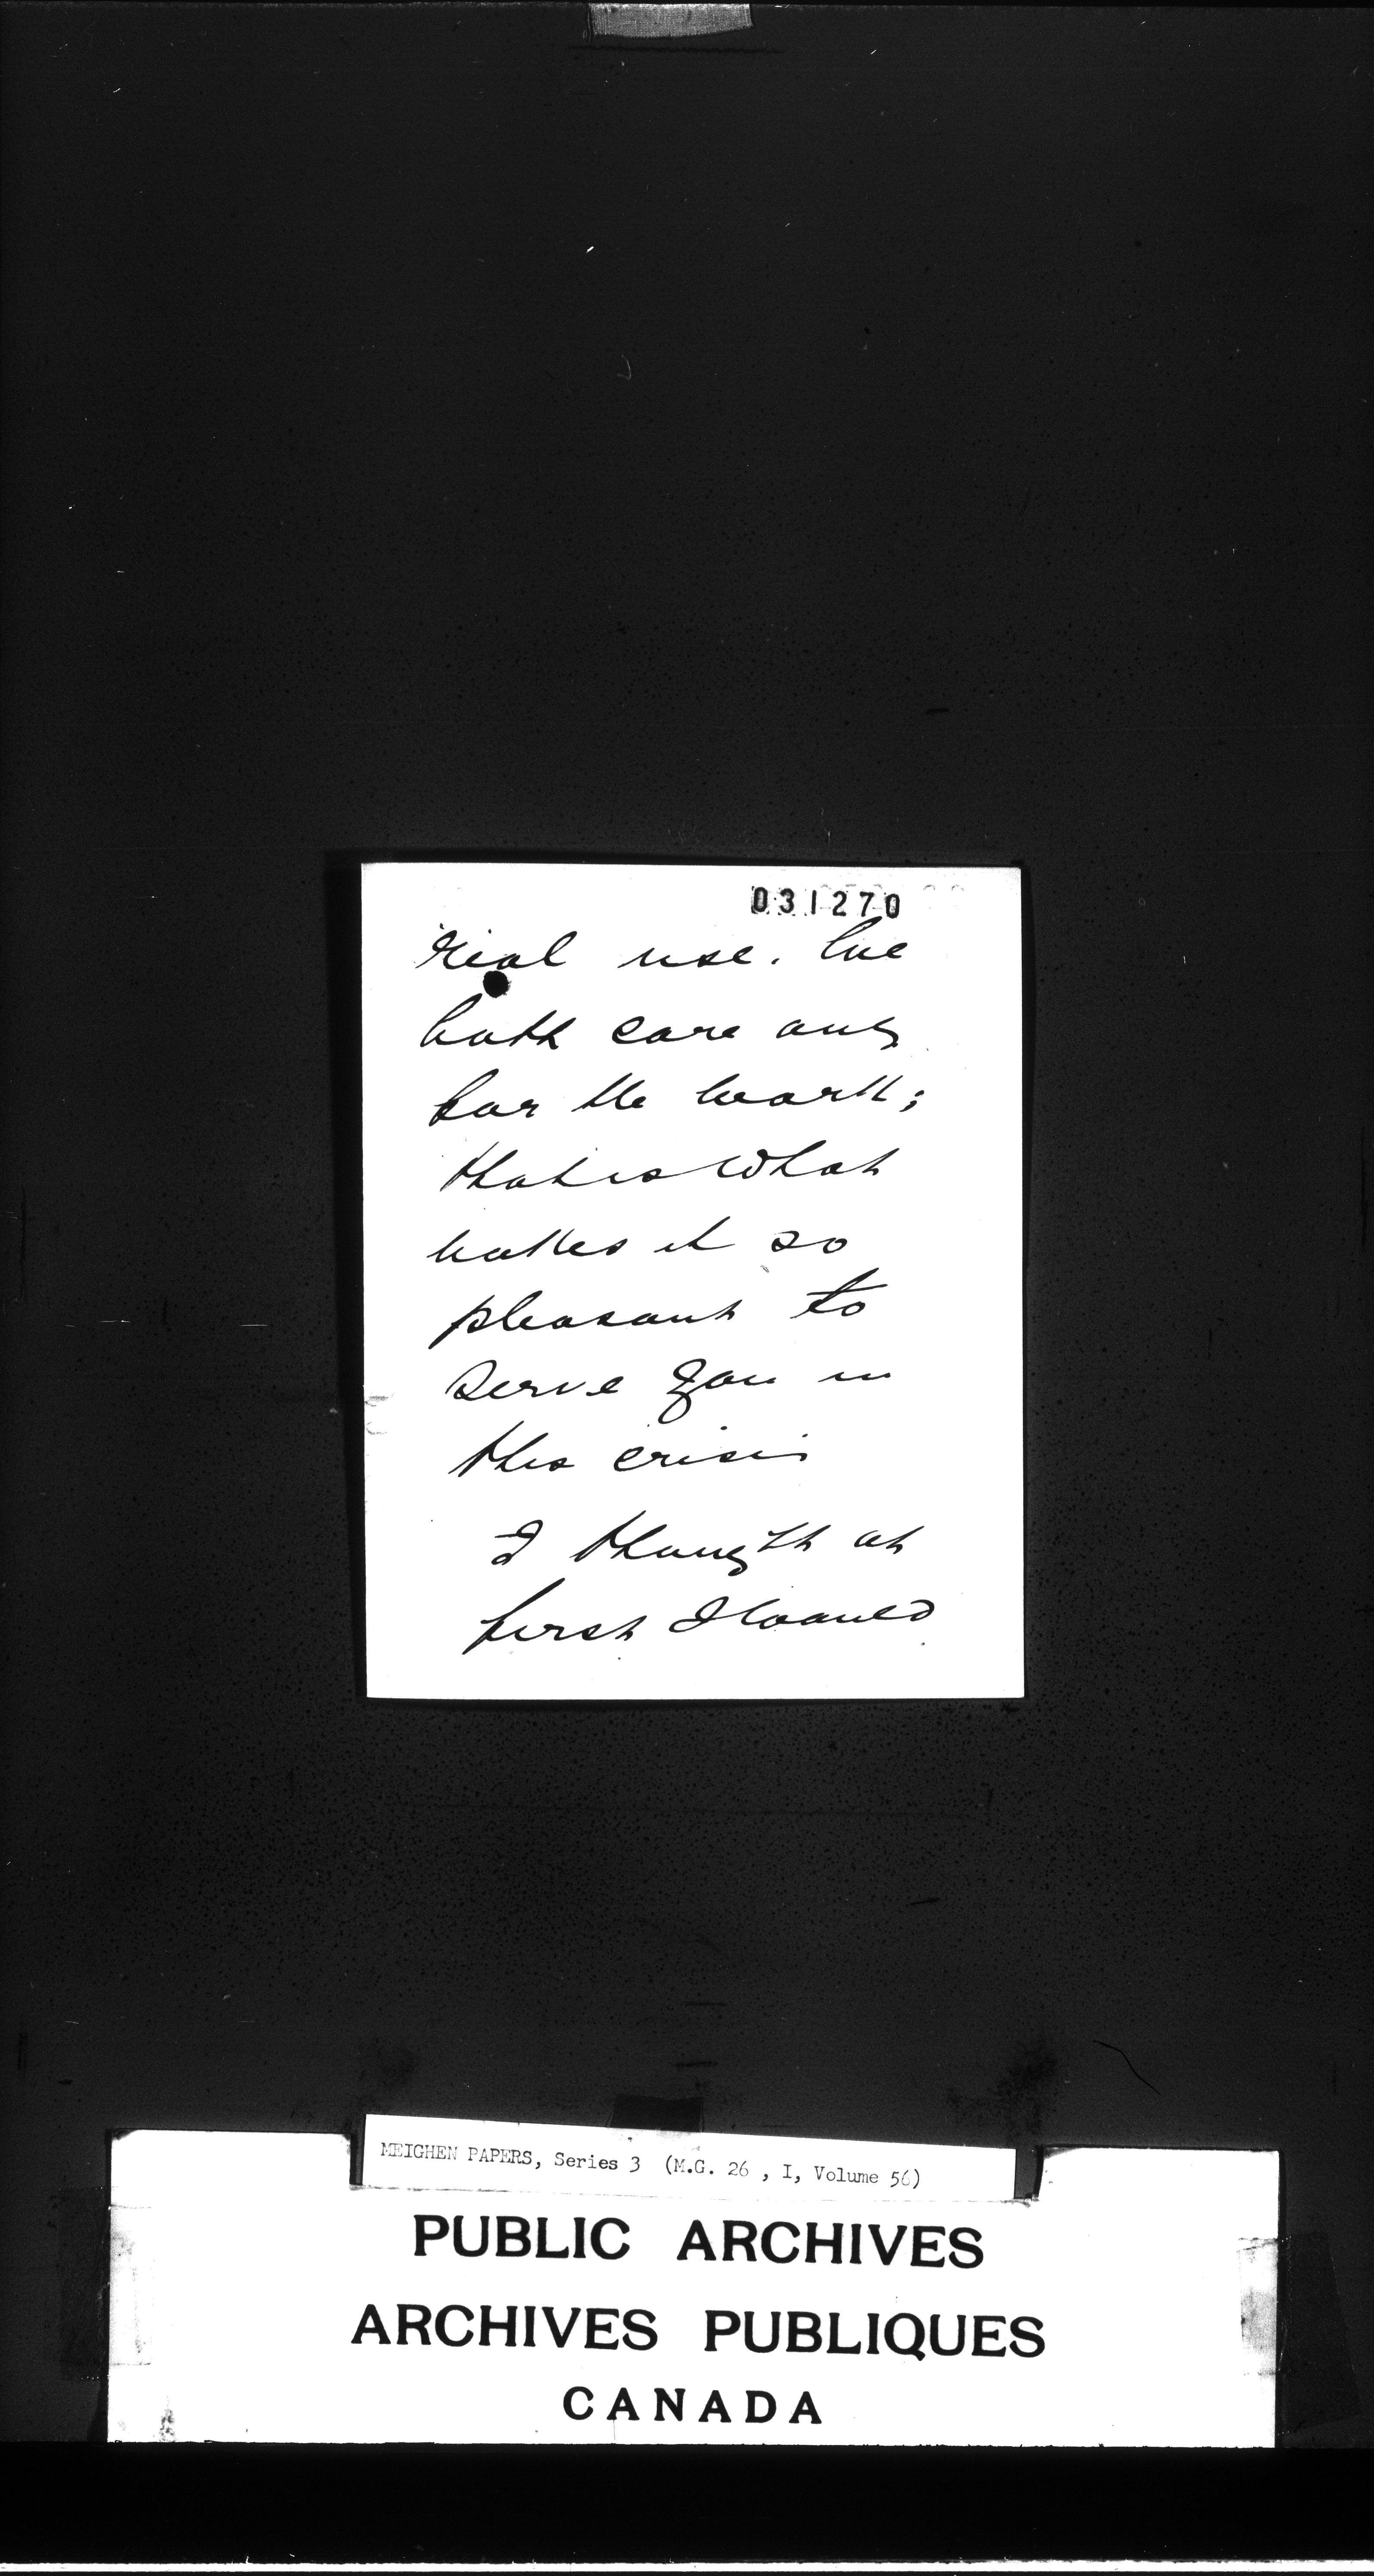 031270
real use. We
both care only
for the work;
that is what
makes it so
pleasant to
serve you in
this crisis
I thought at
first I would
MEIGHEN PAPERS, Series 3 (M.G. 26 , I, Volume 56)
PUBLIC ARCHIVES
ARCHIVES PUBLIQUES
CANADA